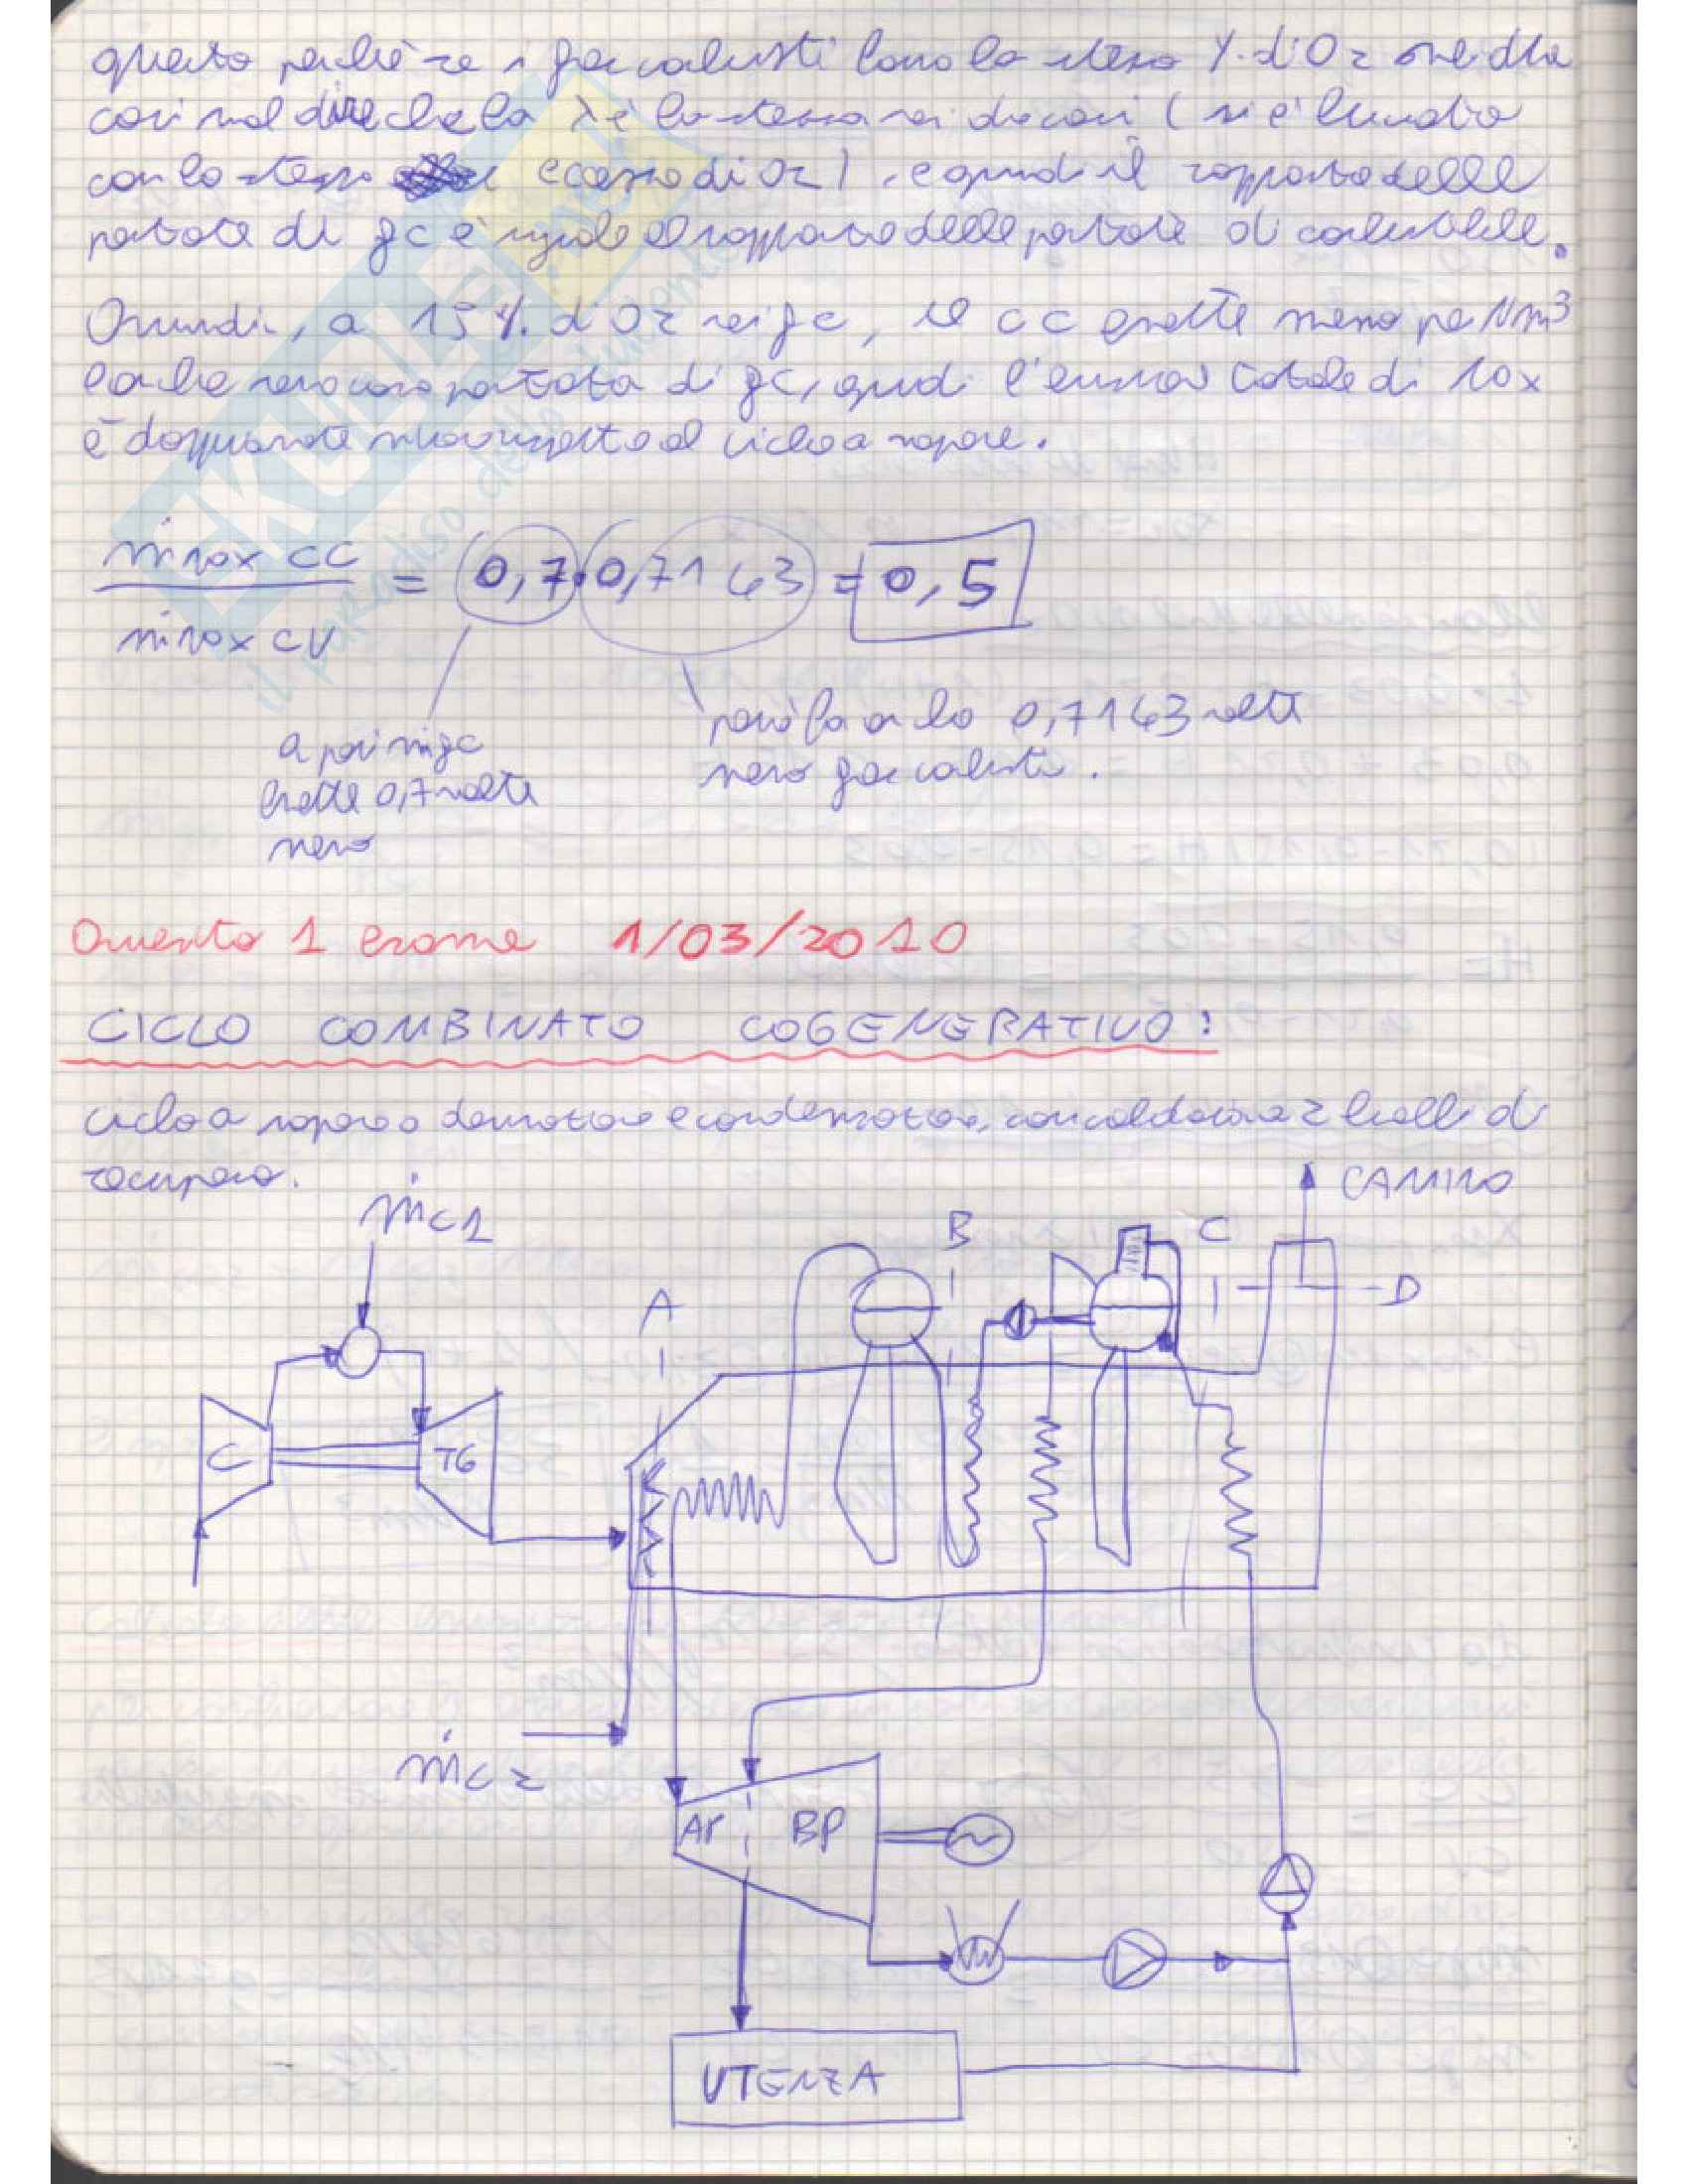 questo perchè se i gas combusti hanno la stessa % di O2 medio
così vuol dire che la λ è la stessa nei due casi (si è bruciato
con lo stesso eccesso di O2), e quindi il rapporto delle
portate di gc è uguale al rapporto delle portate di combustibile.
Quindi, a 15% d'O2 nei gc, il CC emette meno per Nm³
e anche meno portata di gc, quindi l'emissione totale di NOx
è doppiamente rispetto al ciclo a vapore.
ṁ NOx CC / ṁ NOx CV = 0,7 · 0,7163 = 0,5
a pari m gc
emette 0,7 volte
meno
però fa anche 0,7163 volte
meno gas combusti.
Quesito 1 esame 1/03/2010
CICLO COMBINATO COGENERATIVO:
ciclo a vapore a derivazione e condensazione, con caldaia a 2 livelli di
recupero.
CAMINO
ṁc1
A
B
C
D
C
TG
ṁc2
AP
BP
UTENZA
EKUBE.net
il paradiso dello studente